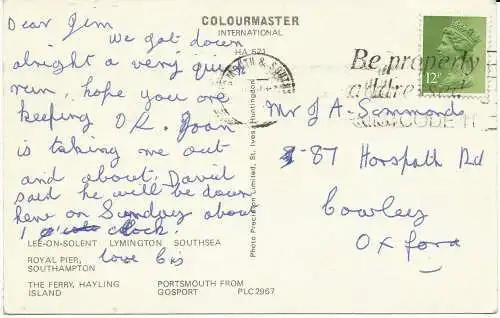 Dear Jim
COLOURMASTER
INTERNATIONAL
HA 621
We got down
alright a very quiet
run, hope you are
keeping O.K. Joan
is taking me out
and about. David
said he will be down
here on Sunday about
1 o'clock.
love Cis
LEE-ON-SOLENT LYMINGTON SOUTHSEA
ROYAL PIER,
SOUTHAMPTON
THE FERRY, HAYLING
ISLAND
PORTSMOUTH FROM
GOSPORT PLC2967
Photo Precision Limited, St. Ives, Huntingdon
Be properly
addressed
POSTCODE IT
12P
Mr J A Simmonds
87 Horspath Rd
Cowley
Oxford